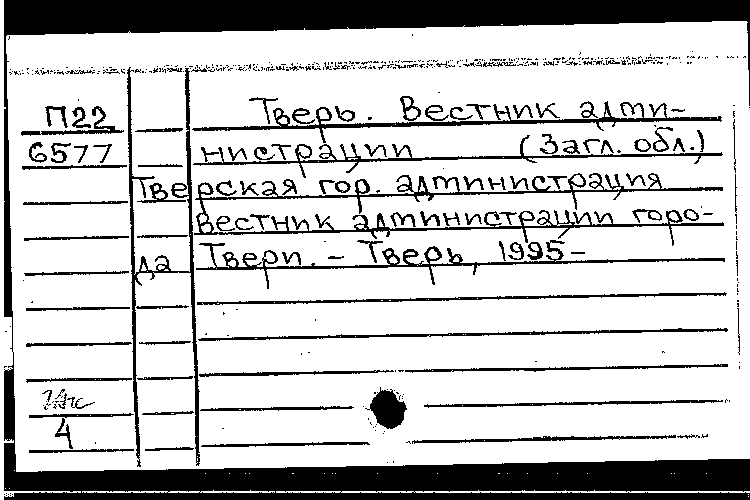 П22 Тверь. Вестник адми-
6577 нистрации (Загл. обл.)
Тверская гор. администрация
Вестник администрации горо-
да Твери. – Тверь, 1995–
4